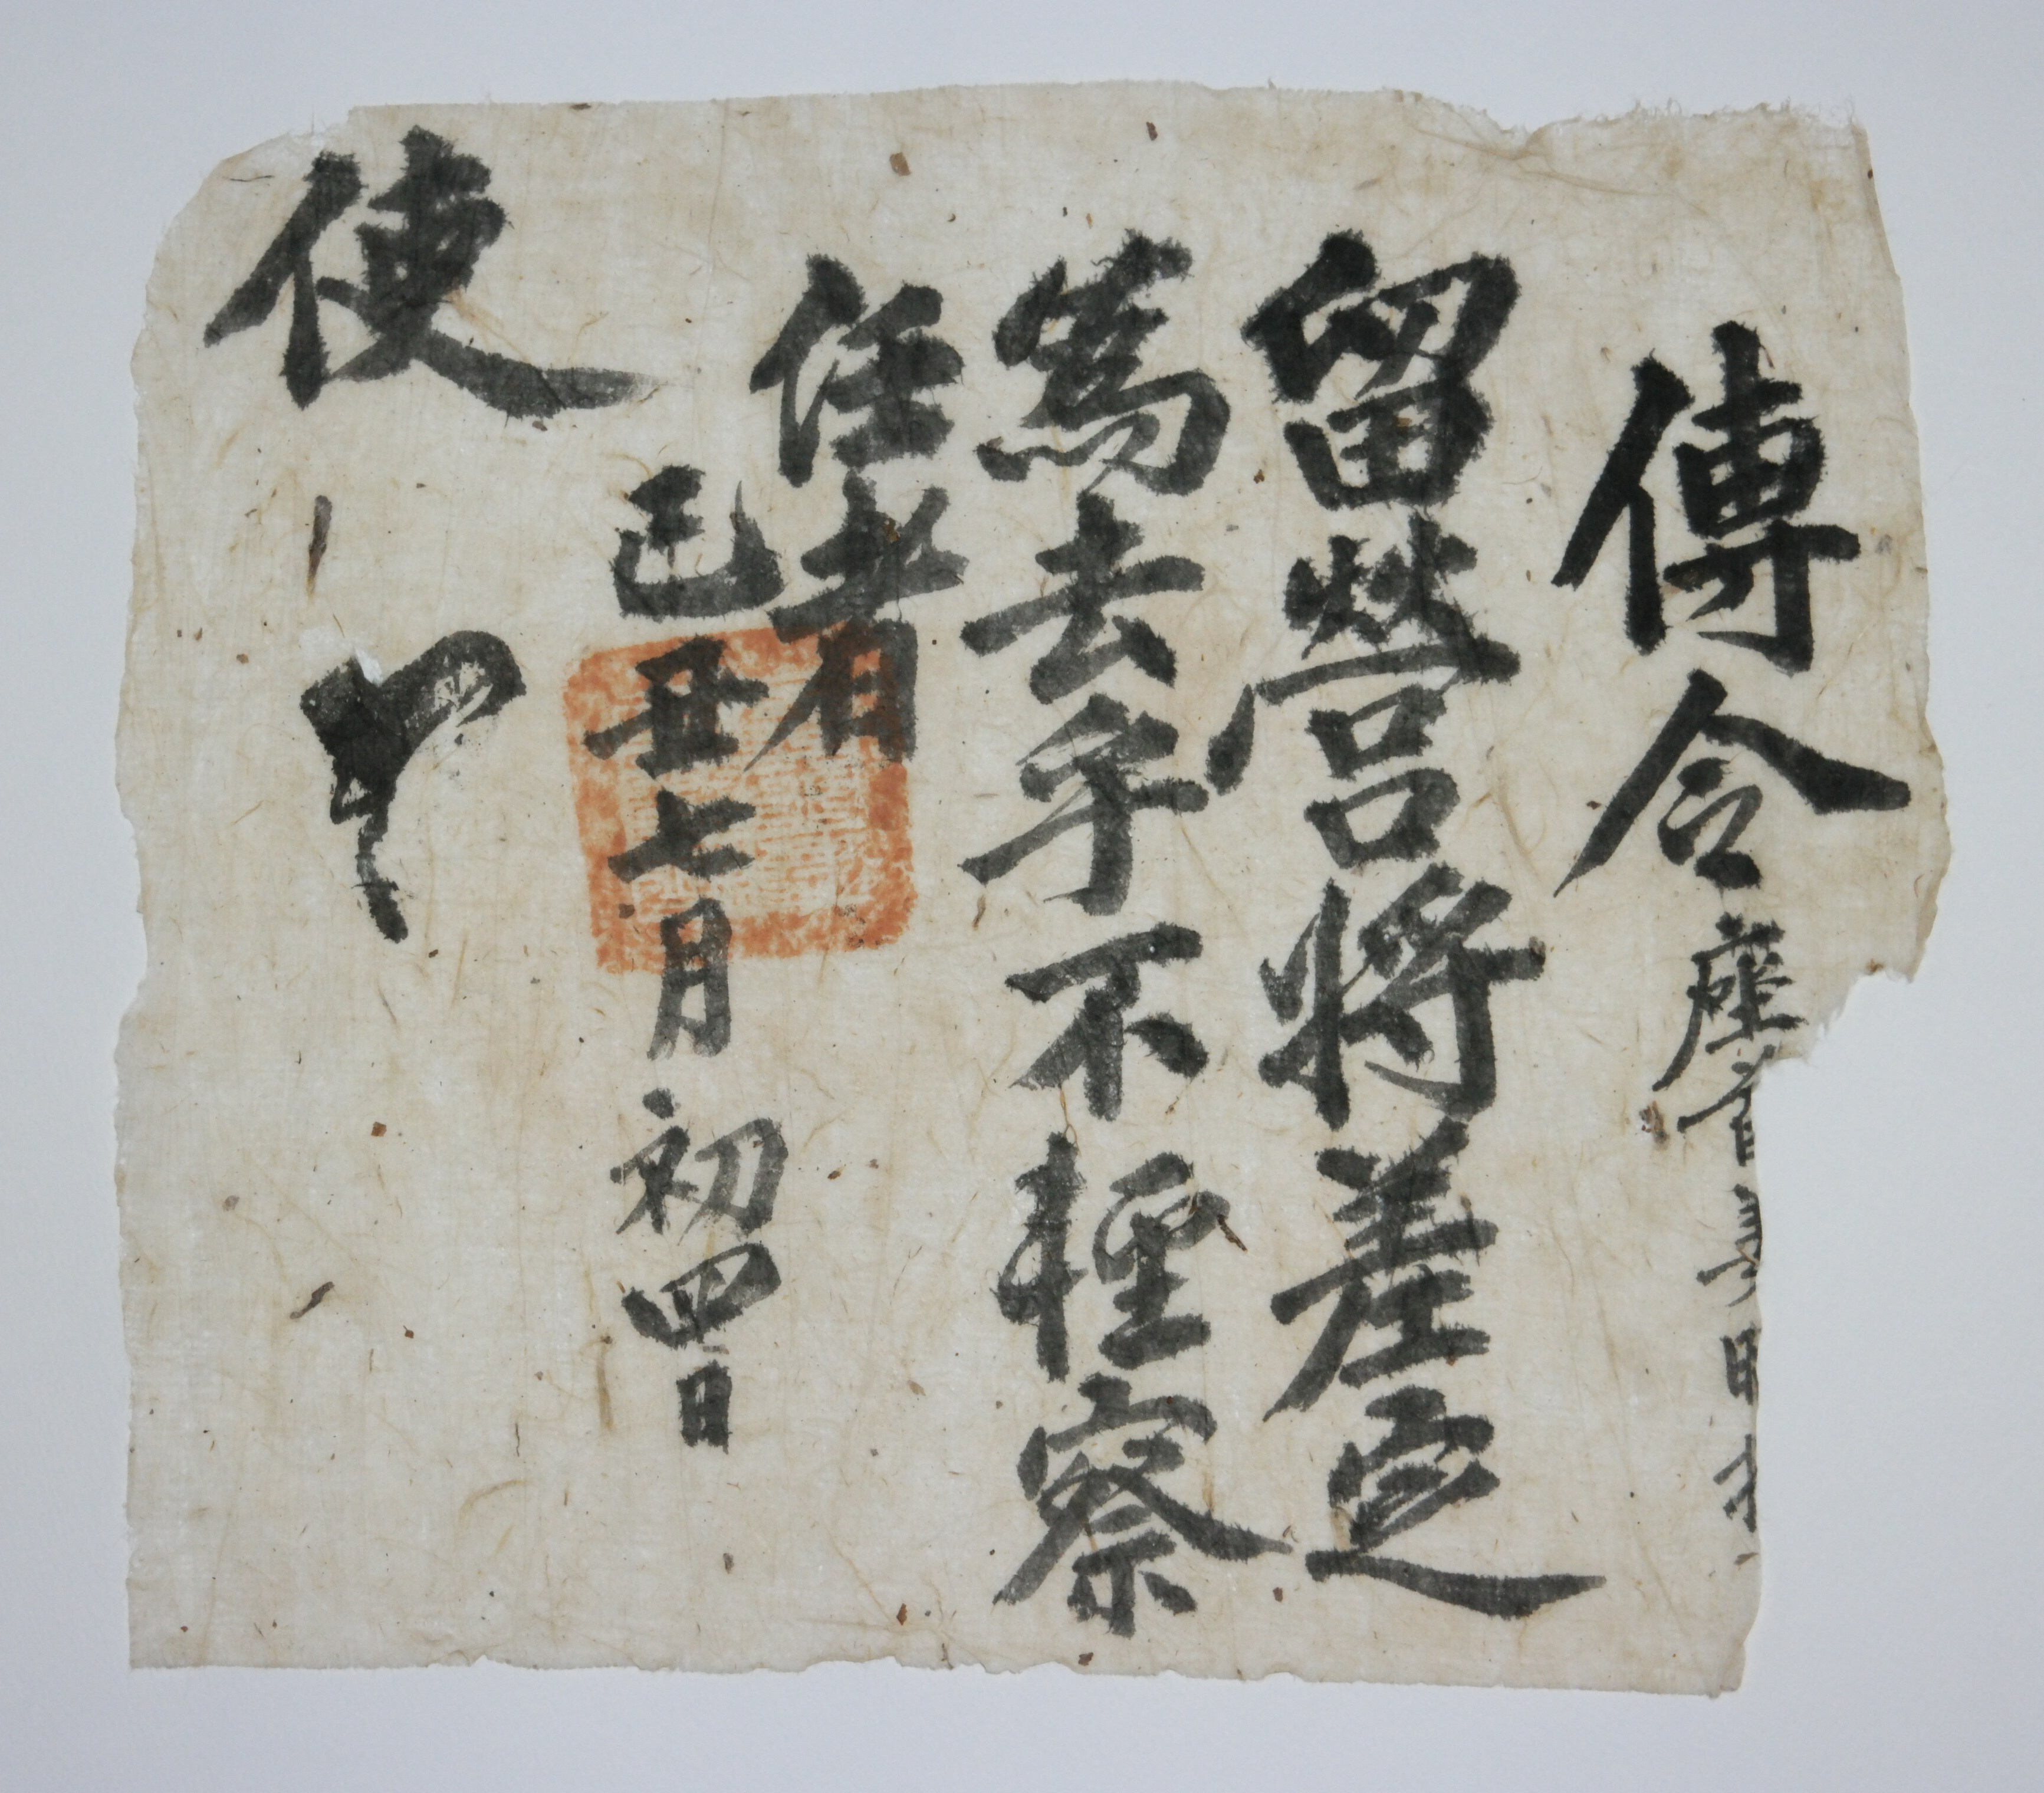 傳令 座首
留營將差定
爲去乎不輕察
任者
己丑七月初四日
使